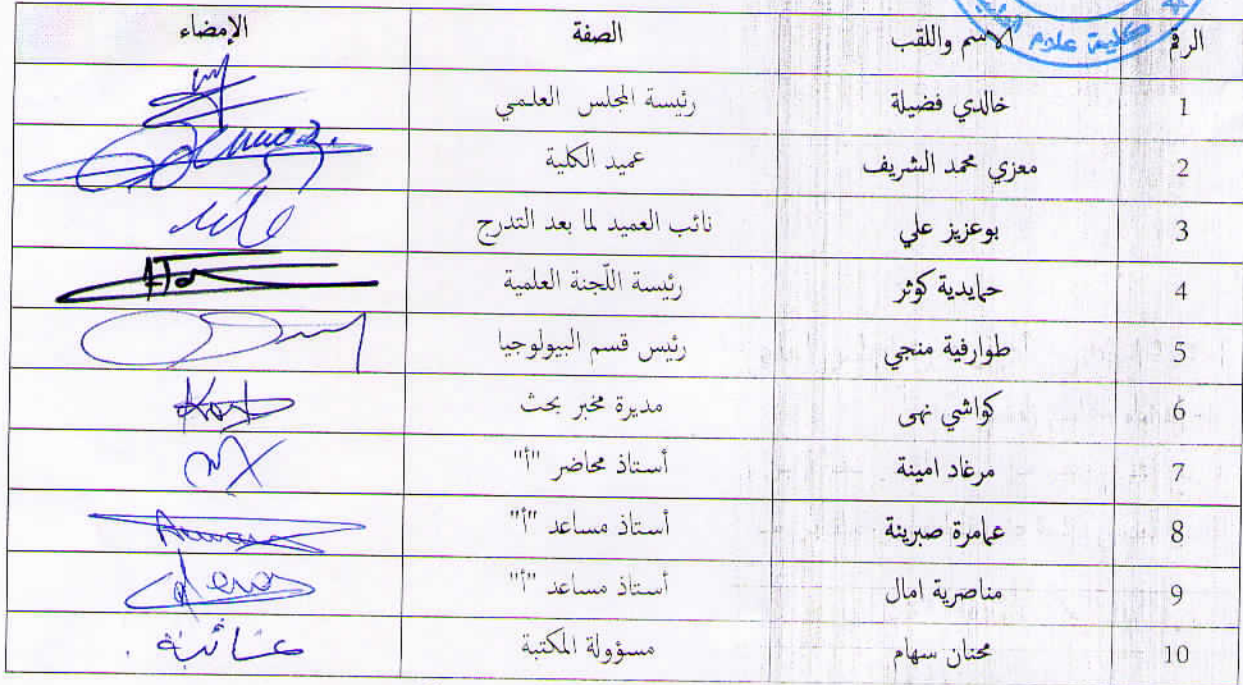 كلية علوم
الرقم الاسم واللقب الصفة الإمضاء
1 خالدي فضيلة رئيسة المجلس العلمي
2 معزي محمد الشريف عميد الكلية
3 بوعزيز علي نائب العميد لما بعد التدرج
4 حمايدية كوثر رئيسة اللّجنة العلمية
5 طوارفية منجي رئيس قسم البيولوجيا
6 كواشي نهى مديرة مخبر بحث
7 مرغاد امينة أستاذ محاضر "أ"
8 عمامرة صبرينة أستاذ مساعد "أ"
9 مناصرية امال أستاذ مساعد "أ"
10 محنان سهام مسؤولة المكتبة